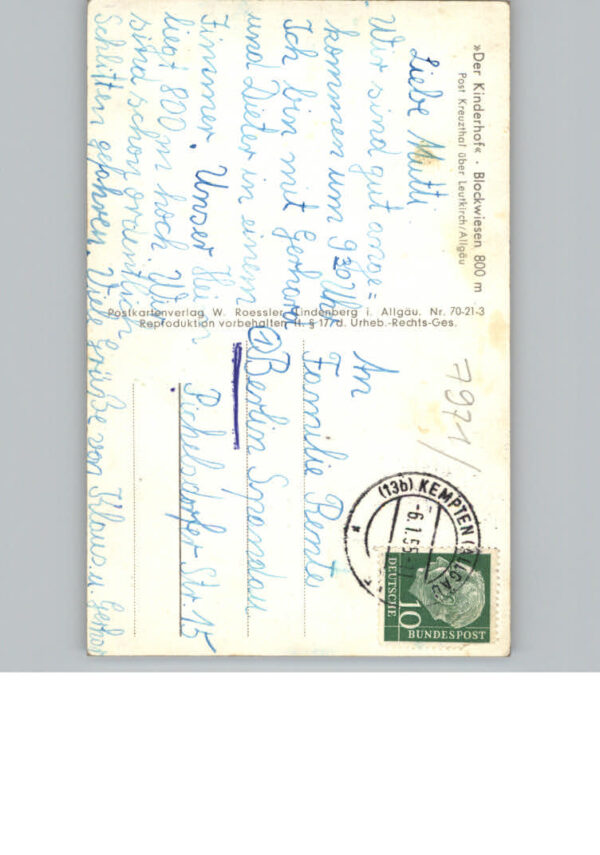 »Der Kinderhof« · Blockwiesen 800 m
Post Kreuzthal über Leutkirch/Allgäu
Liebe Mutti.
Wir sind gut ange=
kommen um 9³⁰ Uhr
Ich bin mit Gerhard
und Dieter in einem
Zimmer. Unser Heim
liegt 800 m hoch. Wir
sind schon ordentlich
Schlitten gefahren. Viel Grüße von Klaus u. Gerhar
Postkartenverlag W. Roessler, Lindenberg i. Allgäu. Nr. 70-21-3
Reproduktion vorbehalten lt. § 17/d. Urheb.-Rechts-Ges.
7971/
An
Familie Rente
Berlin Spandau
Pichelsdorfer Str. 15
(13b) KEMPTEN (ALLGÄU)
-6.1.55
DEUTSCHE
10
BUNDESPOST